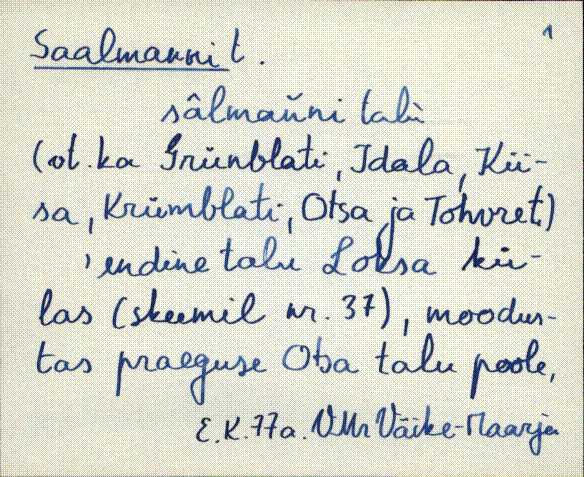 1
Saalmanni t.
sâlmaǹni talù
(vt. ka Grünblati, Idala, Kii-
sa, Krümblati, Otsa ja Tohvret)
'endine talu Loksa kü-
las (skeemil nr. 37), moodus-
tas praeguse Otsa talu poole,
E.K. 77a. VMr Väike-Maarja